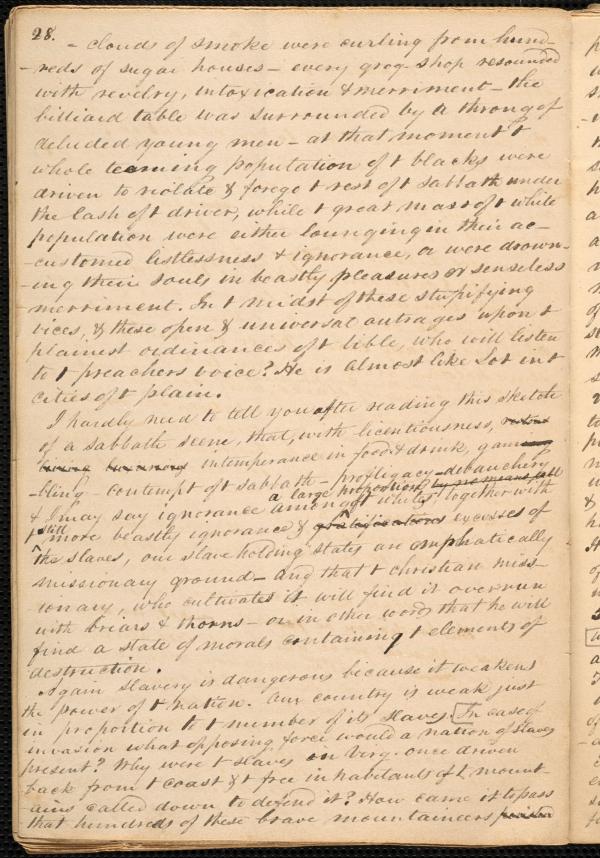 28.
- clouds of smoke were curling from hund-
-reds of sugar houses - every grog-shop resounded
with revelry, intoxication & merriment - the
billiard table was surrounded by a throng of
deluded young men - at that moment t
whole teeming population of t blacks were
driven to violate & forege t rest of t Sabbath under
the lash of t driver, while t great mass of t white
population were either lounging in their ac-
-customed listlessness & ignorance, or were drown-
-ing their souls in beastly pleasures or senseless
merriment. In t midst of these stupifying
vices, & these open & universal outrages upon t
plainest ordinances of t bible, who will listen
to t preachers voice? He is almost like Lot in t
cities of t plain.
I hardly need to tell you after reading this sketch
of a sabbath scene, that, with licentiousness,
intemperance in food & drink, gam
-bling - contempt of t sabbath - profligacy - debauchery
& I may say ignorance amongst a large proportion of t whites by no means all together with
t still more beastly ignorance & gratifications excesses of
the slaves, our slave holding states are emphatically
missionary ground - and that t christian miss-
ionary, who cultivates it will find it overrun
with briars & thorns - or in other words that he will
find a state of morals containing t elements of
destruction.
Again Slavery is dangerous because it weakens
the power of t nation. Our country is weak just
in proportion to t member of its slaves. In case of
invasion what opposing force would a nation of slaves
present? Why were t slaves in Virg. once driven
back from t coast & t free inhabitants of t mount-
ains called down to defend it? How came it to pass
that hundreds of these brave mountaineers